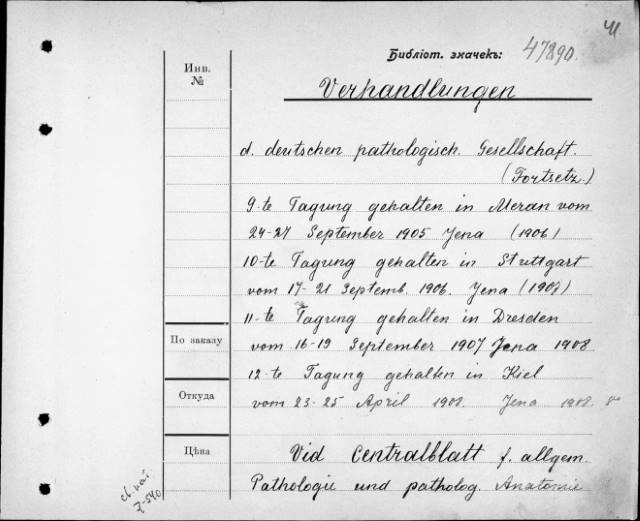 41
Библіот. значекъ: 47890.
Инв.
№
Verhandlungen
d. deutschen pathologisch. Gesellschaft.
(Fortsetz.)
9-te Tagung gehalten in Meran vom
24-27 September 1905 Jena (1906)
10-te Tagung gehalten in Stuttgart
vom 17-21 Septemb. 1906. Jena (1907)
11-te Tagung gehalten in Dresden
По заказу
vom 16-19 September 1907 Jena 1908
12-te Tagung gehalten in Kiel
Откуда
vom 23-25 April 1908. Jena 1908. 8°
Цѣна
Vid Centralblatt f. allgem.
Pathologie und patholog. Anatomie
7-540